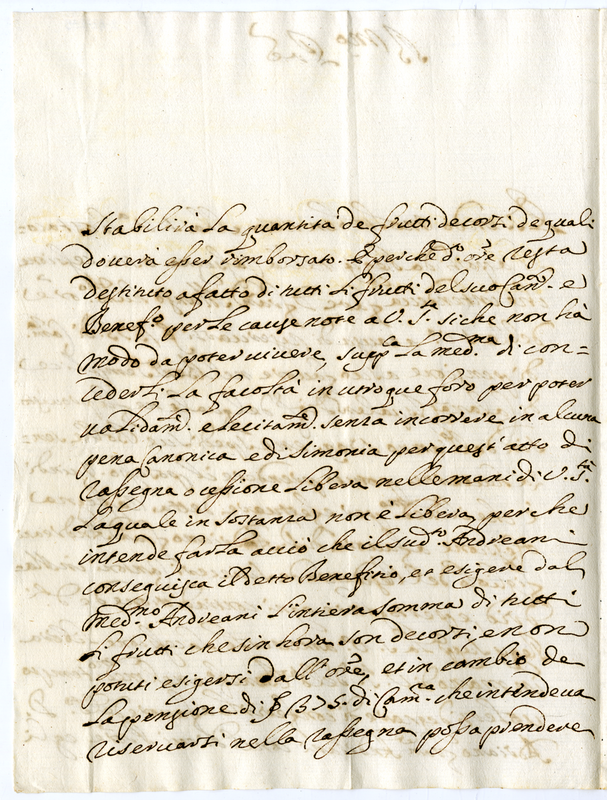 stabilirà la quantità de frutti decorsi de quali
doverà esser rimborsato. E perche d.º ore resta
destituto afatto di tutti li frutti del suo Can.to e
Benef.º per le cause note a V. S.tà siche non hà
modo da poter vivere, supp.ca la med.ma di con=
cederli la facoltà in utroque foro per poter
validam.e e lecitam.e senza incorrere in alcuna
pena Canonica e di simonia per quest'atto di
rassegna o cessione libera nelle mani di V. S.tà
la quale in sostanza non è libera, perche
intende farla acciò che il sud.º Andreani
conseguisca il detto Benefitio, et esigere dal
med.mo Andreani l'intiera somma di tutti
li frutti che sin hora son decorsi, e non
potuti esigersi dall'ore, et in cambio de
la pensione di 375. di Cam.ra che intendeva
riservarsi nella rassegna possa prendere